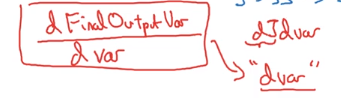 d FinalOutputVar
d var
dJdvar
"dvar"